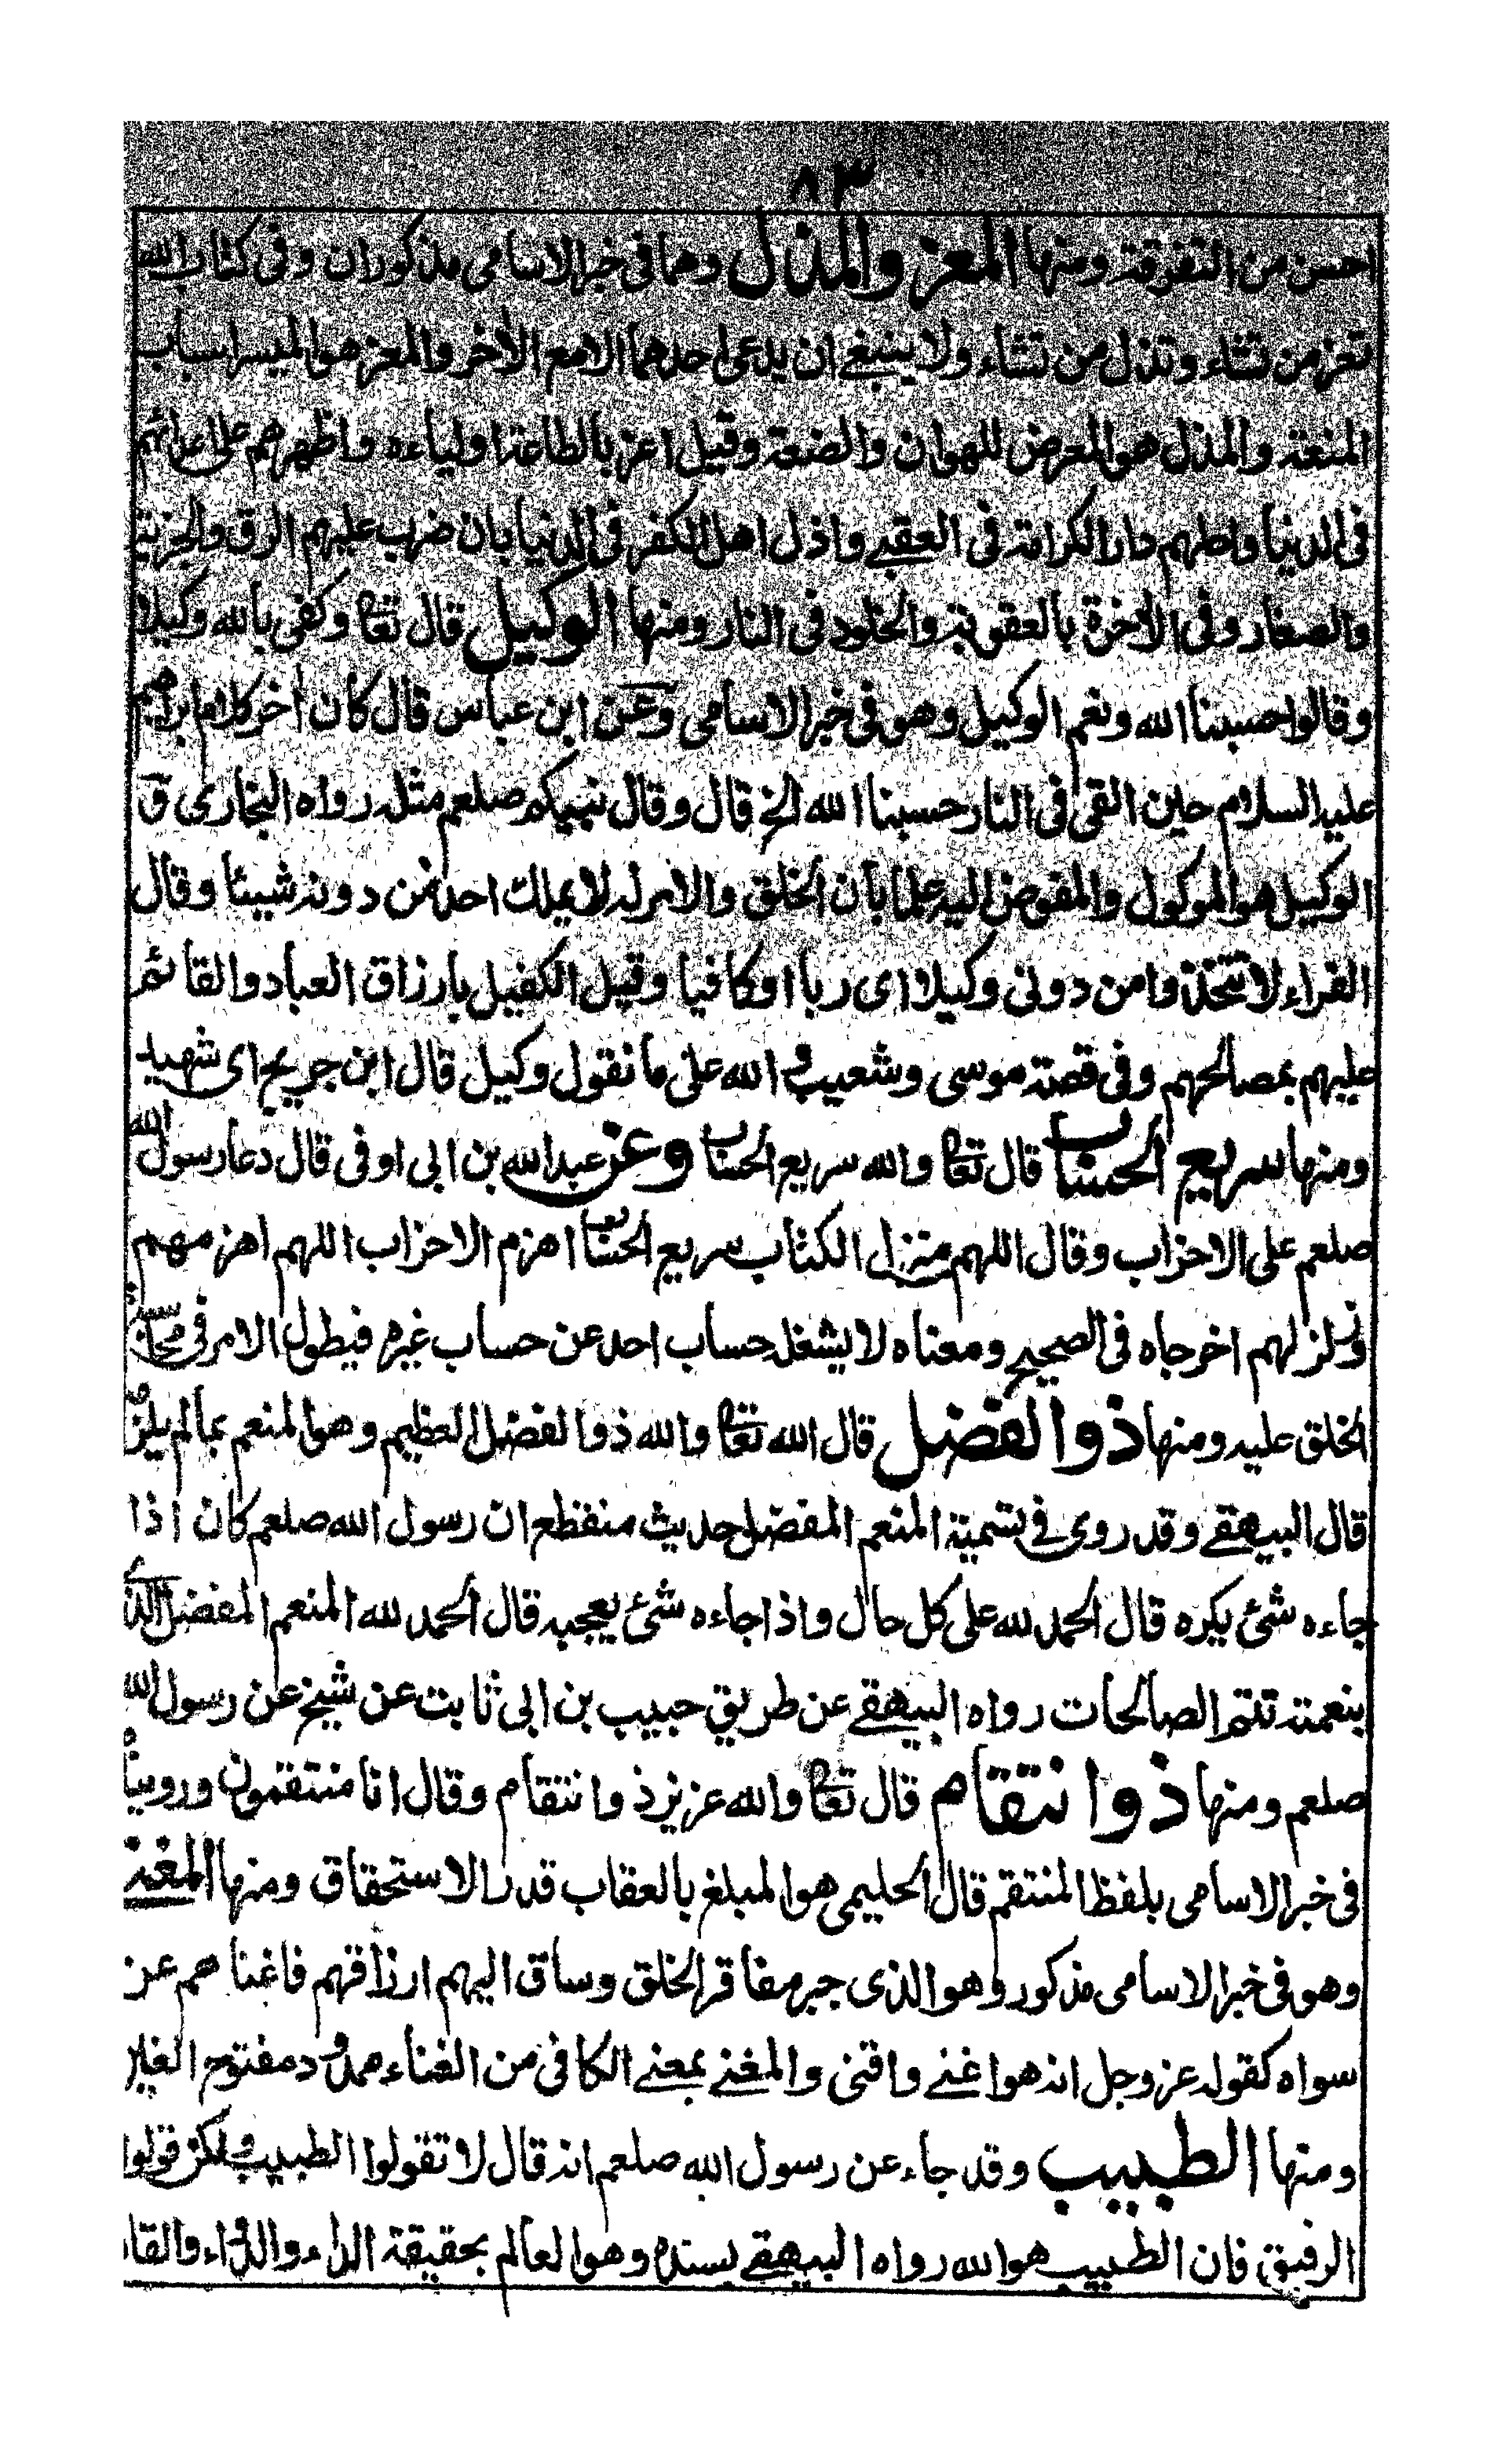 ٨٣
احسن من التفرقة ومنها المعز والمذل وهما فى خبر الاسامى مذكوران وفى كتاب الله
تعز من تشاء وتذل من تشاء ولا ينبغے ان يدعى احدهما الا مع الأخر والمعز هو الميسر اسباب
المنعة والمذل هو المعرض للهوان والضعة وقيل اعز بالطاعة اولياءه واظهرهم على اعدائهم
فى الدنيا واحلهم دار الكرامة فى العقبے واذل اهل الكفر فى الدنيا بان ضرب عليهم الرق والجزية
والصغار وفى الأخرة بالعقوبة والخلود فى النار ومنها الوكيل قال تعا وكفى بالله وكيلا
وقالوا حسبنا الله ونعم الوكيل وهو فى خبر الاسامى وعن ابن عباس قال كان أخر كلام ابراهيم
عليه السلام حين القى فى النار حسبنا الله الخ قال وقال نبيكم صلعم مثله رواه البخارى ق
الوكيل هو الموكول والمفوض اليه علما بان الخلق والامر له لا يملك احد من دونه شيئا وقال
الفراء لا تتخذوا من دونى وكيلا اى ربا او كافيا وقيل الكفيل بارزاق العباد والقائم
عليهم بمصالحهم وفى قصة موسى وشعيب و الله على ما نقول وكيل قال ابن جريج اى شهيد
ومنها سريع الحساب قال تعا والله سريع الحساب وعن عبد الله بن ابى اوفى قال دعا رسول الله
صلعم على الاحزاب وقال اللهم منزل الكتاب سريع الحساب اهزم الاحزاب اللهم اهزمهم
وزلزلهم اخرجاه فى الصحيح ومعناه لا يشغله حساب احد عن حساب غيره فيطول الامر فى محاسبة
الخلق عليه ومنها ذوا الفضل قال الله تعا والله ذوا لفضل العظيم وهو المنعم بما لم يلزمه
قال البيهقے وقد روى فى تسمية المنعم المفضل حديث منقطع ان رسول الله صلعم كان اذا
جاءه شئ يكره قال الحمد لله على كل حال واذا جاءه شئ يعجبه قال الحمد لله المنعم المفضل الذى
بنعمته تتم الصالحات رواه البيهقے عن طريق حبيب بن ابى ثابت عن شيخ عن رسول الله
صلعم ومنها ذوا نتقام قال تعا والله عزيز ذوا نتقام وقال انا منتقمون ورويناه
فى خبر الاسامى بلفظ المنتقم قال الحليمى هو المبلغ بالعقاب قدر الاستحقاق ومنها المغنے
وهو فى خبر الاسامى مذكور وهو الذى جبر مفاقر الخلق وساق اليهم ارزاقهم فاغناهم عن
سواه كقوله عز وجل انه هو اغنے واقنى والمغنے بمعنے الكافى من الغناء ممدود مفتوح الغين
ومنها الطبيب وقد جاء عن رسول الله صلعم انه قال لا تقولوا الطبيب ولكن قولوا
الرفيق فان الطبيب هو الله رواه البيهقے بسنده وهو العالم بحقيقة الداء والدواء والقا